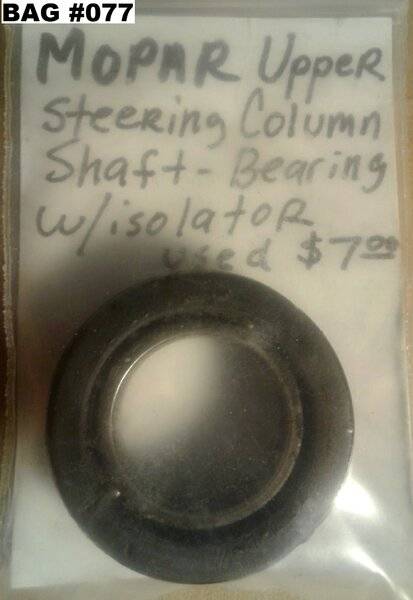 BAG #077
MOPAR Upper
Steering Column
Shaft - Bearing
w/isolator
used $7.00